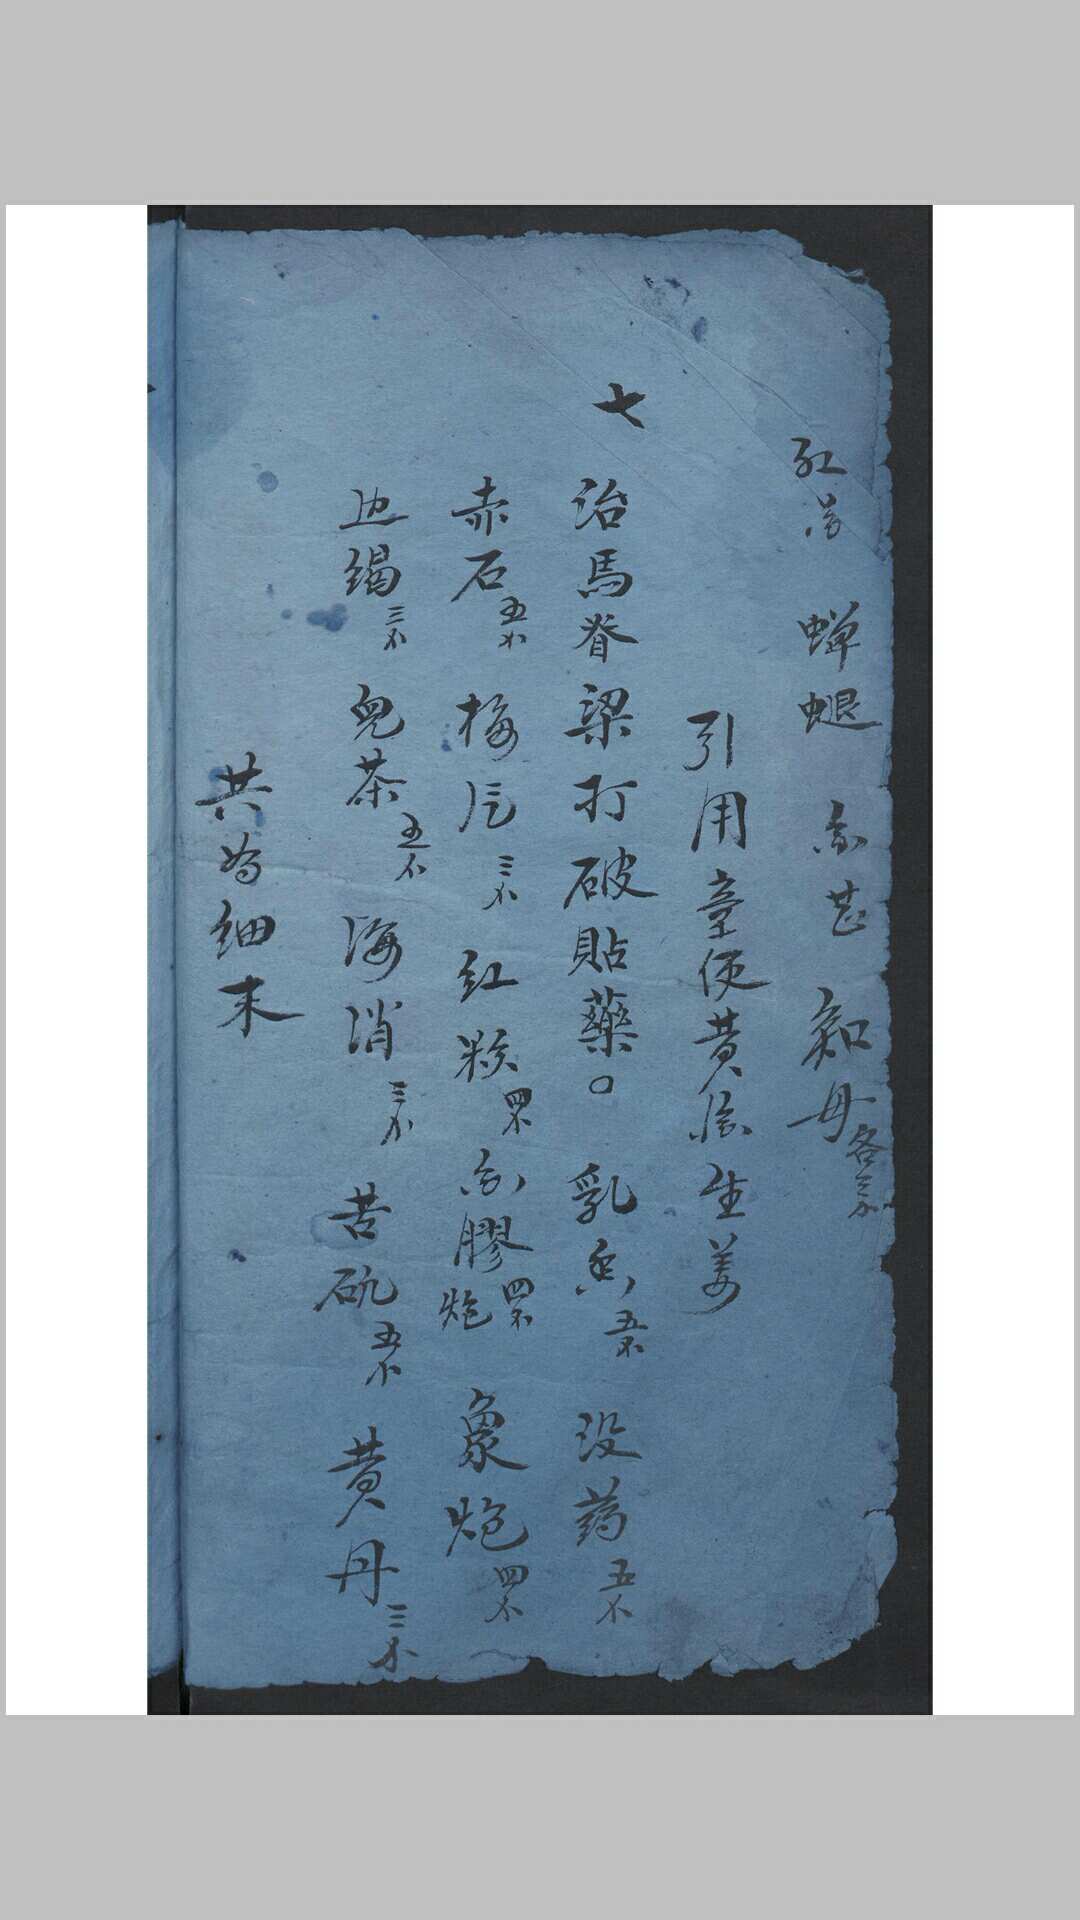 紅花 蟬蜕 粉甘 知母各三分
引用童便黄酒生姜
七 治馬脊梁打破貼藥。 乳香五分 没药五分
赤石五分 梅片三分 紅粉四分 魚膠炮四分 象炮四分
血竭三分 兒茶五分 海消三分 苦矾五分 黄丹三分
共为細末